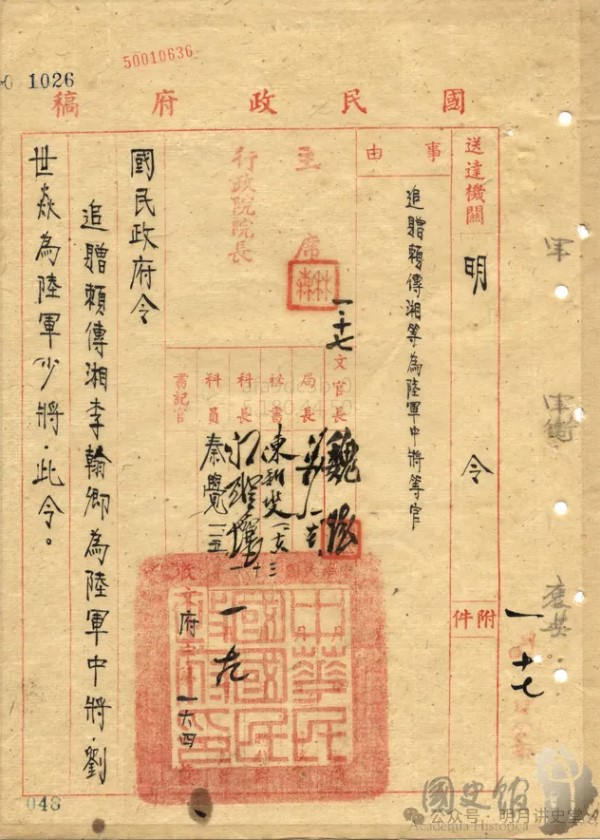 50010636
1026
國民政府稿
送達機關
明令
附件
一 十七
事由
追贈賴傳湘等為陸軍中將等官
主席
行政院院長
一、十七
文官長
魏
局長
秘書
科長
科員
秦覺 一五
書記官
國民政府令
追贈賴傳湘李翰卿為陸軍中將劉
世焱為陸軍少將此令。
中華民國國民政府印
府
一六四
048
軍
軍銜
國史館
Academia Historica
公众号·明月讲史堂